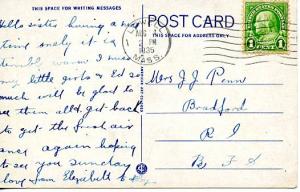 THIS SPACE FOR WRITING MESSAGES
Hello sister having a
time surely it is
terribly warm I miss
my little girls & Ed so
much will be glad to
see them all & get back
to get the first air
ance again hoping
to see you someday
love from Elizabeth &
POST CARD
THIS SPACE FOR ADDRESS ONLY
AUG
PM
1935
MASS.
1 CENT 1
Mrs J J Penn
Bradford
R I